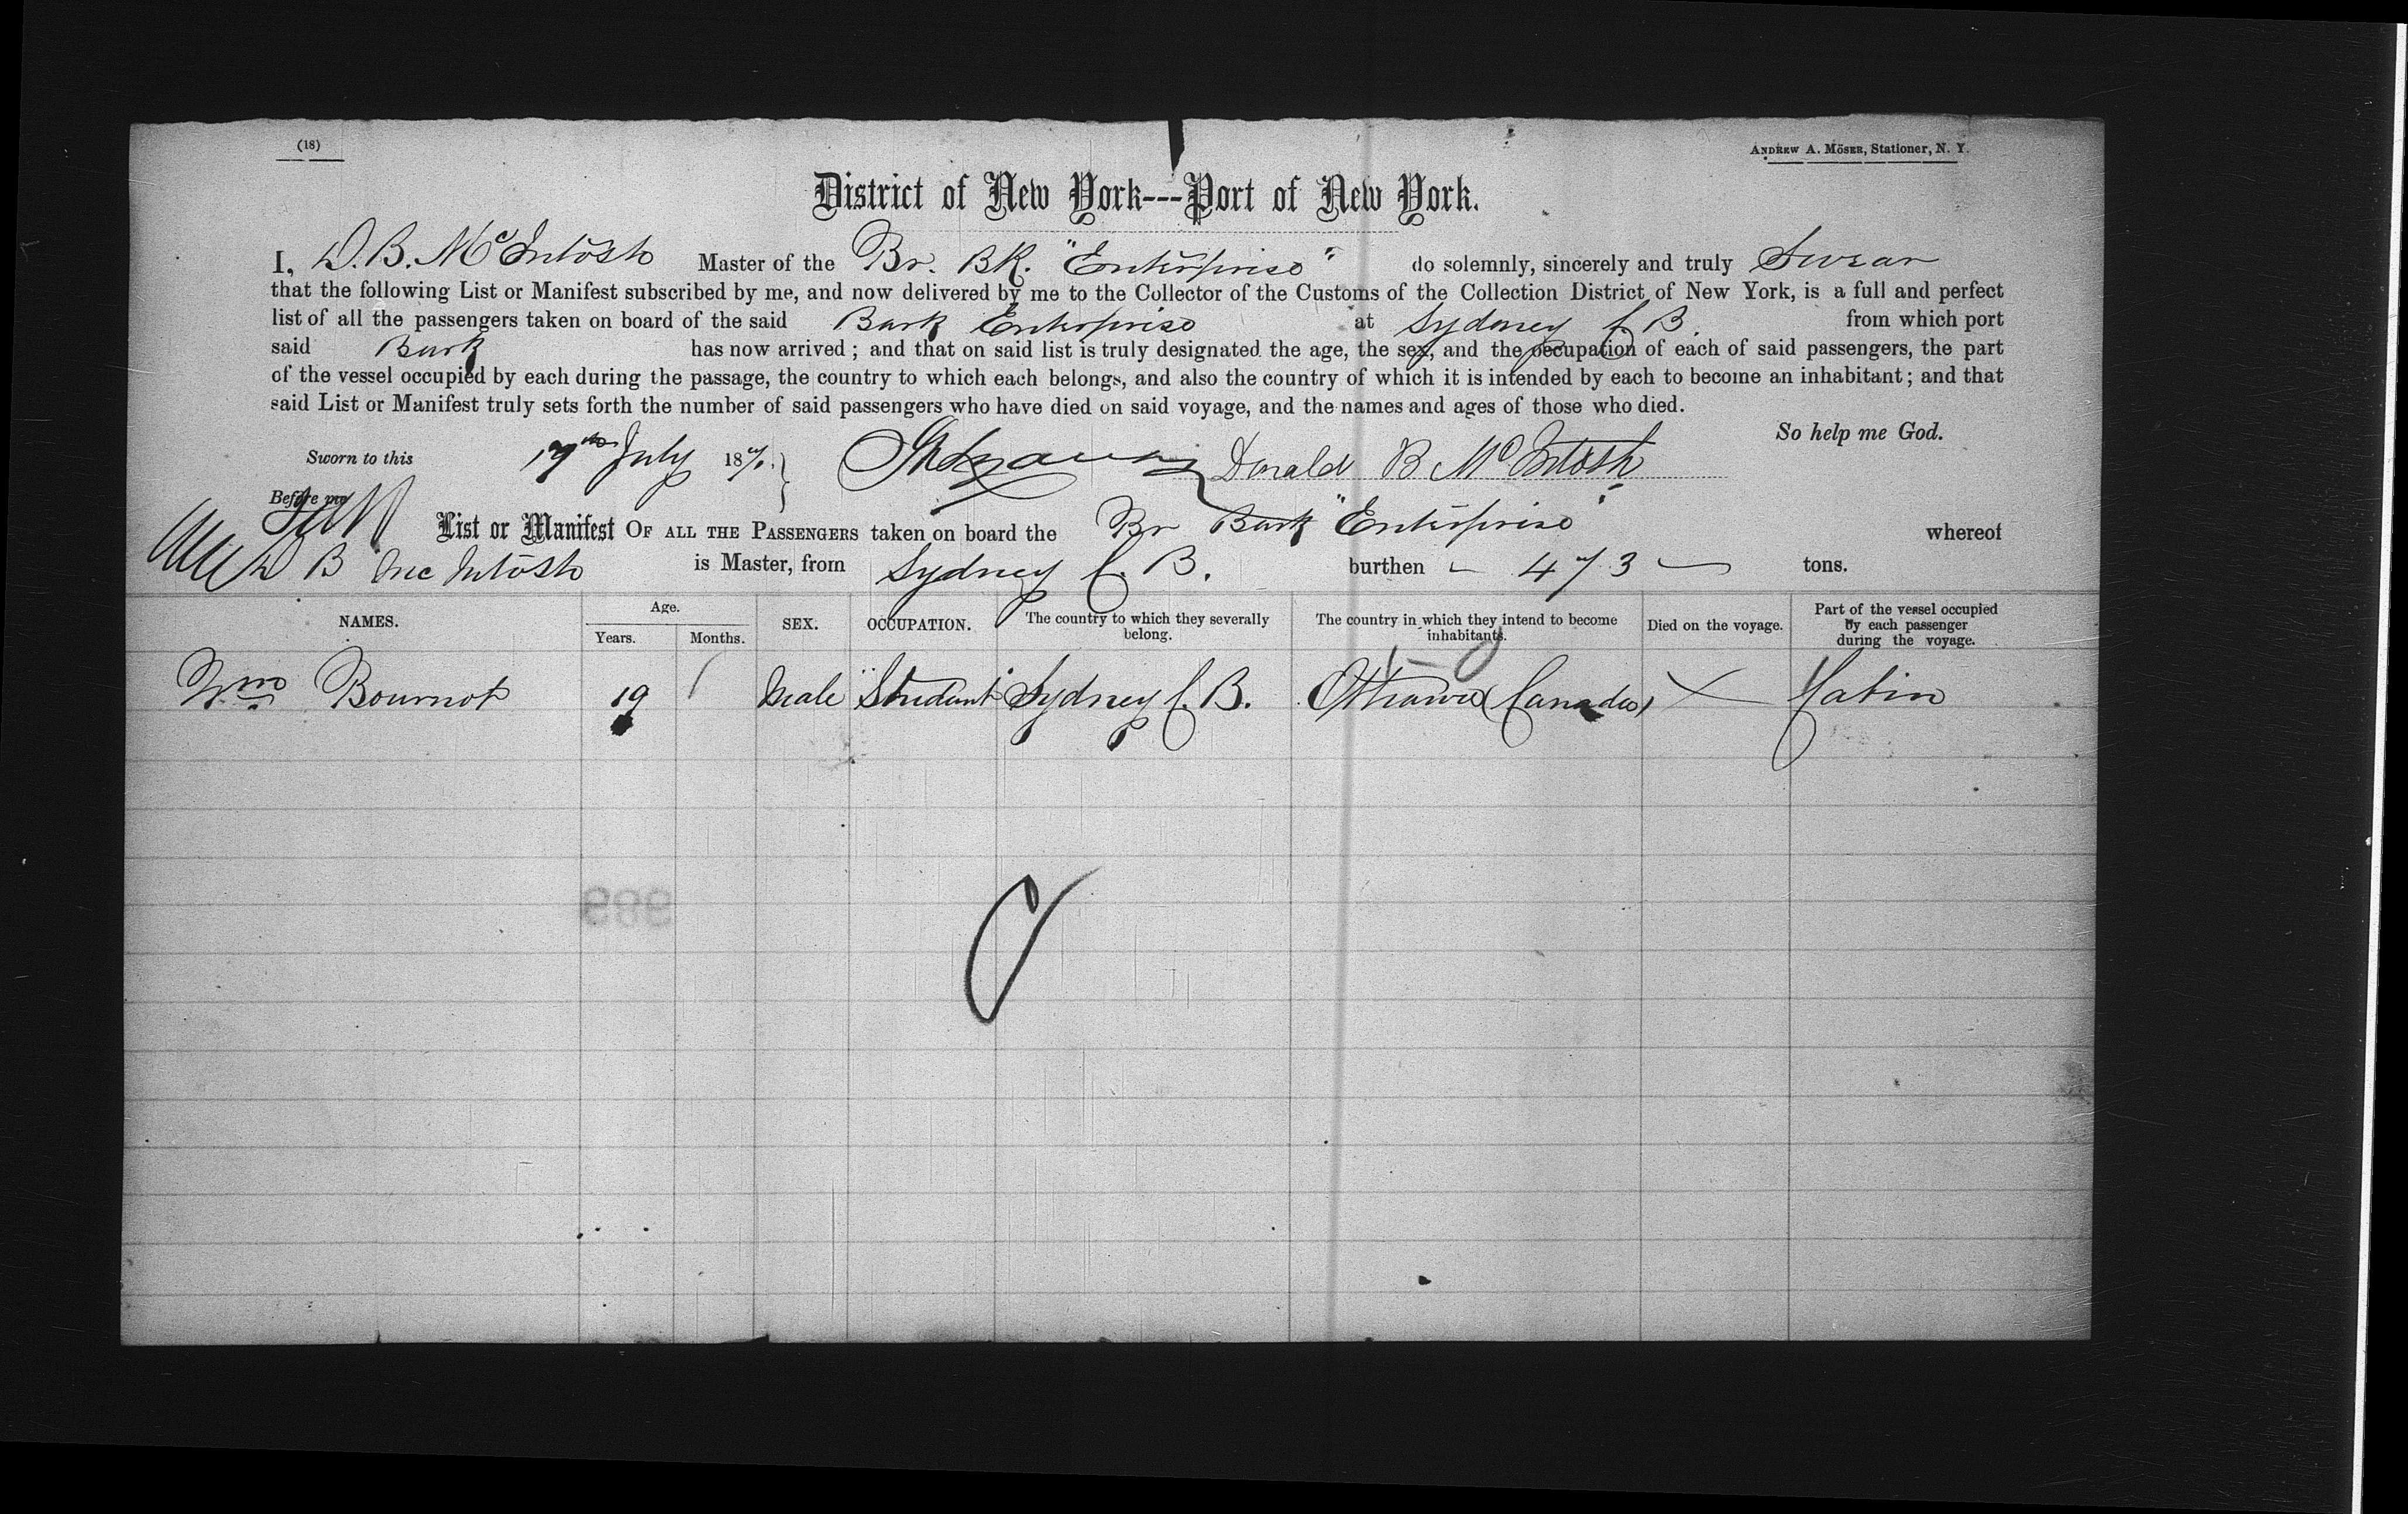 (18)
ANDREW A. MÖSER, Stationer, N. Y.
District of New York---Port of New York.
I, D. B. McIntosh Master of the Br. Bk. "Enterprise" do solemnly, sincerely and truly Swear
that the following List or Manifest subscribed by me, and now delivered by me to the Collector of the Customs of the Collection District of New York, is a full and perfect
list of all the passengers taken on board of the said Bark Enterprise at Sydney C. B. from which port
said Bark has now arrived ; and that on said list is truly designated the age, the sex, and the occupation of each of said passengers, the part
of the vessel occupied by each during the passage, the country to which each belongs, and also the country of which it is intended by each to become an inhabitant ; and that
said List or Manifest truly sets forth the number of said passengers who have died on said voyage, and the names and ages of those who died.
So help me God.
Sworn to this 17th July 187 Donald B McIntosh
Before me
List or Manifest OF ALL THE PASSENGERS taken on board the Br Bark "Enterprise" whereof
D B McIntosh is Master, from Sydney C. B. burthen – 473 – tons.
NAMES. Age. Years. Months. SEX. OCCUPATION. The country to which they severally belong. The country in which they intend to become inhabitants. Died on the voyage. Part of the vessel occupied by each passenger during the voyage.
Wm Bournot 19 / Male "Student" Sydney C. B. Ottawa (Canada) X Cabin